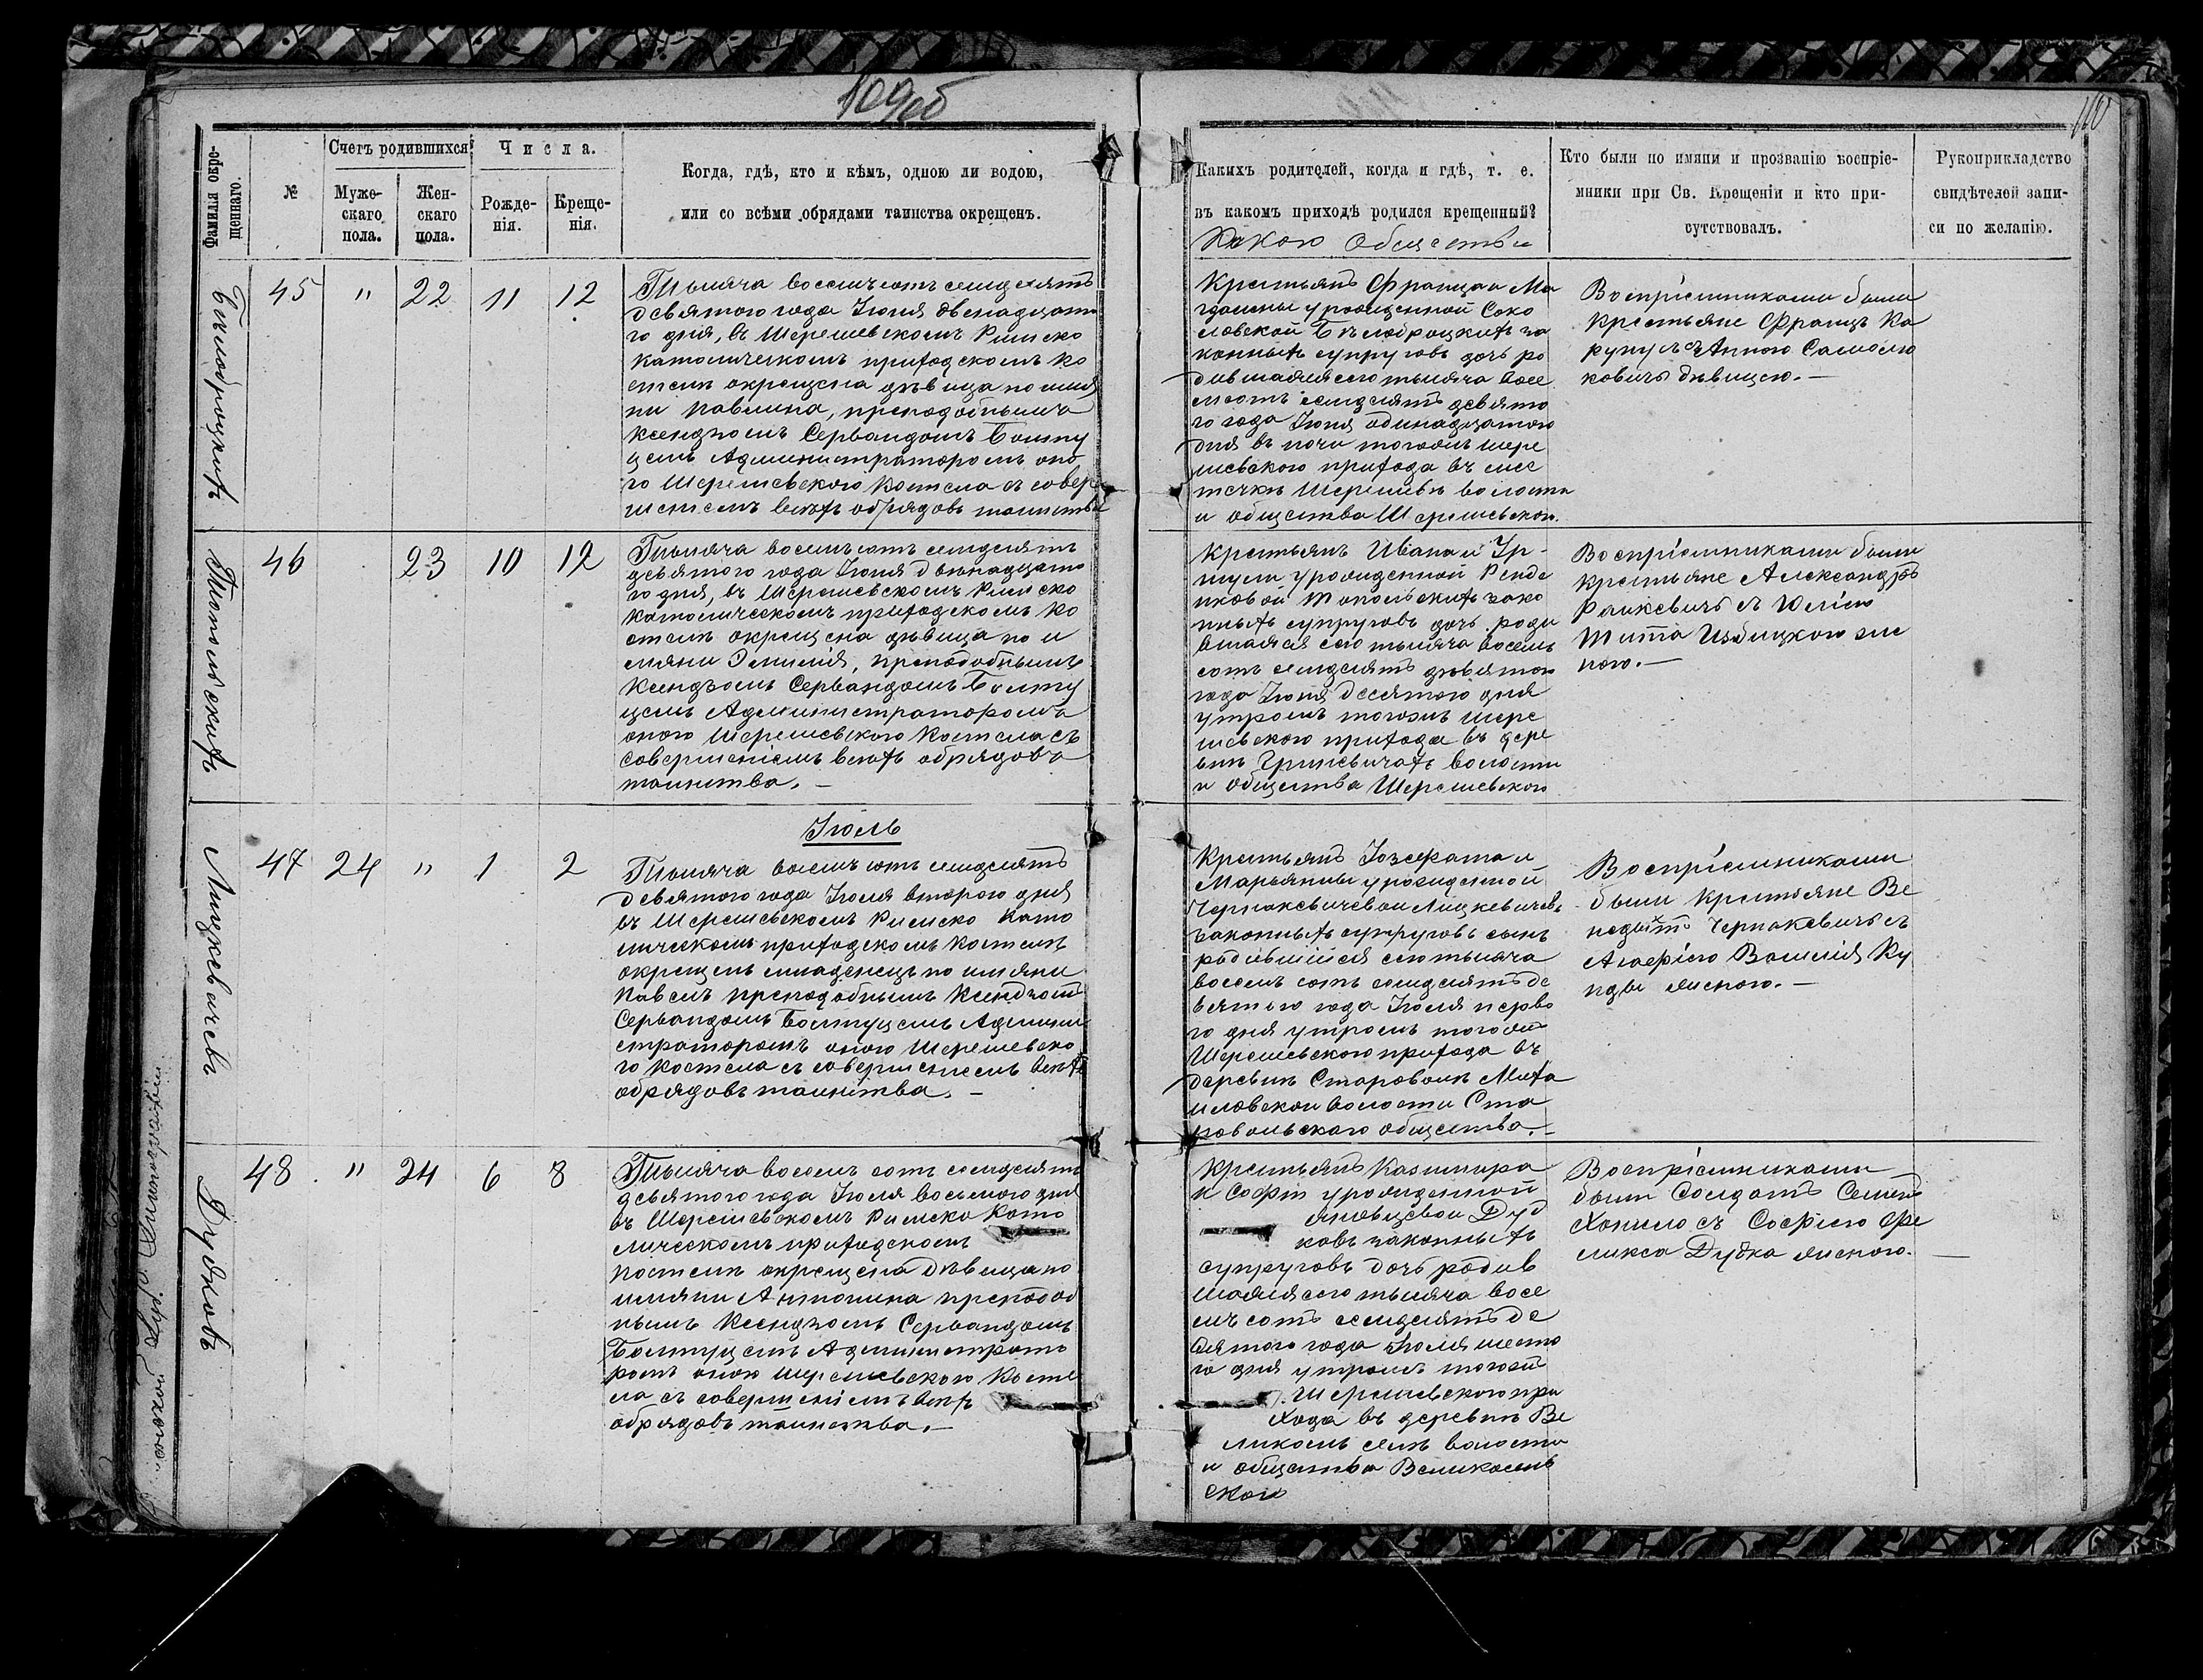 109об
110
Фамилія окре-
щеннаго.
№
Счетъ родившихся
Муже-
скаго
пола.
Жен-
скаго
пола.
Числа.
Рожде-
нія.
Креще-
нія.
Когда, гдѣ, кто и кѣмъ, одною ли водою,
или со всѣми обрядами таинства окрещенъ.
Какихъ родителей, когда и гдѣ, т. е.
въ какомъ приходѣ родился крещенный?
какого общества
Кто были по имяни и прозванію воспріе-
мники при Св. Крещеніи и кто при-
сутствовалъ.
Рукоприкладство
свидѣтелей запи-
си по желанію.
Бѣлоброцкихъ
45 " 22 11 12
Тысяча восемъсотъ семдесятъ
девятого года Іюня двенадцата
го дня, въ Шерешевскомъ Римско
католическомъ приходскомъ ко
стелѣ окрещена дѣвица по имя
ни Павлина, преподобнымъ
Ксендзомъ Сервандомъ
Администраторомъ оно
го Шерешевского Костела съ совер
шеніемъ всѣхъ обрядовъ таинства
Крестьянъ Франца и Ма
гдалены урожденной Соко
ловской Бѣлоброцкихъ за
конныхъ супруговъ дочь ро
дившаяся сего тысяча восе
мсотъ семдесятъ девято
го года Іюня одинадцатого
дня въ ночи тогожъ Шере
шевского прихода въ мес
течкѣ Шерешевѣ волости
и общества Шерешевского.
Воспріемниками были
крестьяне Францъ Ка
съ Анною
дѣвицею.—
46 23 10 12
Тысяча восемъсотъ семдесятъ
девятого года Іюня двѣнадцато
го дня, въ Шерешевскомъ Римско
Католическомъ приходскомъ ко
стелѣ окрещена дѣвица по и
мяни Эмилія, преподобнымъ
Ксендзомъ Сервандомъ
Администраторомъ
оного Шерешевского Костела съ
совершеніемъ всѣхъ обрядовъ
таинства.—
Крестьянъ Ивана и
урожденной
зако
нныхъ супруговъ дочь роди
вшаяся сего тысяча восемъ
сотъ семдесятъ девятого
года Іюня десятого дня
утромъ тогожъ Шере
шевского прихода въ дере
внѣ Гриневичахъ волости
и общества Шерешевского
Воспріемниками были
крестьяне Александръ
съ Юліею
Тита Избицкого же
ною.—
Лицкевичевъ
Іюль
47 24 " 1 2
Тысяча восемъ сотъ семдесятъ
девятого года Іюля второго дня
въ Шерешевскомъ Римско Като
лическомъ приходскомъ костелѣ
окрещенъ младенецъ по имяни
Павелъ преподобнымъ Ксендзомъ
Сервандомъ Админи
страторомъ оного Шерешевско
го костела съ совершеніемъ всѣхъ
обрядовъ таинства.—
Крестьянъ Іозефата и
Марьянны урожденной
Лицкевичевъ
законныхъ супруговъ сынъ
родившійся сего тысяча
восемъ сотъ семдесятъ де
вятого года Іюля перво
го дня утромъ тогожъ
Шерешевского прихода въ
деревнѣ Староволи Миха
иловской волости Ста
ровольскаго общества.—
Воспріемниками
были крестьяне Ве
съ
Ку
женою.—
Дудковъ
48 " 24 6 8
Тысяча восемъ сотъ семдесятъ
девятого года Іюля восьмого дня
въ Шерешевскомъ Римско Като
лическомъ приходскомъ
костелѣ окрещена дѣвица по
имяни Антонина преподоб
нымъ Ксендзомъ Сервандомъ
Администрато
ромъ оного Шерешевского Косте
ла съ совершеніемъ всѣхъ
обрядовъ таинства.—
Крестьянъ Казимира
и Софіи урожденной
Дуд
ковъ законныхъ
супруговъ дочь родив
шаяся сего тысяча восе
мъ сотъ семдесятъ де
вятого года Іюля шесто
го дня утромъ тогожъ
Шерешевского при
хода въ деревнѣ Ве
ликомъ селѣ волости
и общества Великосель
ского
Воспріемниками
были Солдатъ
съ Софіею Фе
ликса Дудка женою.—